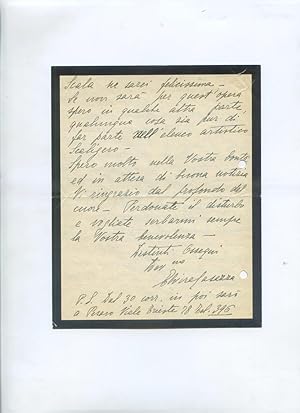 Scala ne sarei felicissima -
Se non sarà per quest'opera
spero in qualche altra parte
qualunque cosa sia pur di
far parte dell'elenco artistico
Scaligero -
Spero molto nella Vostra bontà
ed in attesa di buona notizia
Vi ringrazio dal profondo del
cuore - Perdonate il disturbo
e vogliate serbarmi sempre
la Vostra benevolenza -
Distinti Ossequi
Elvira Casazza
P.S. Dal 30 corr. in poi sarò
a Pesaro Viale Trieste 78 Tel. 396